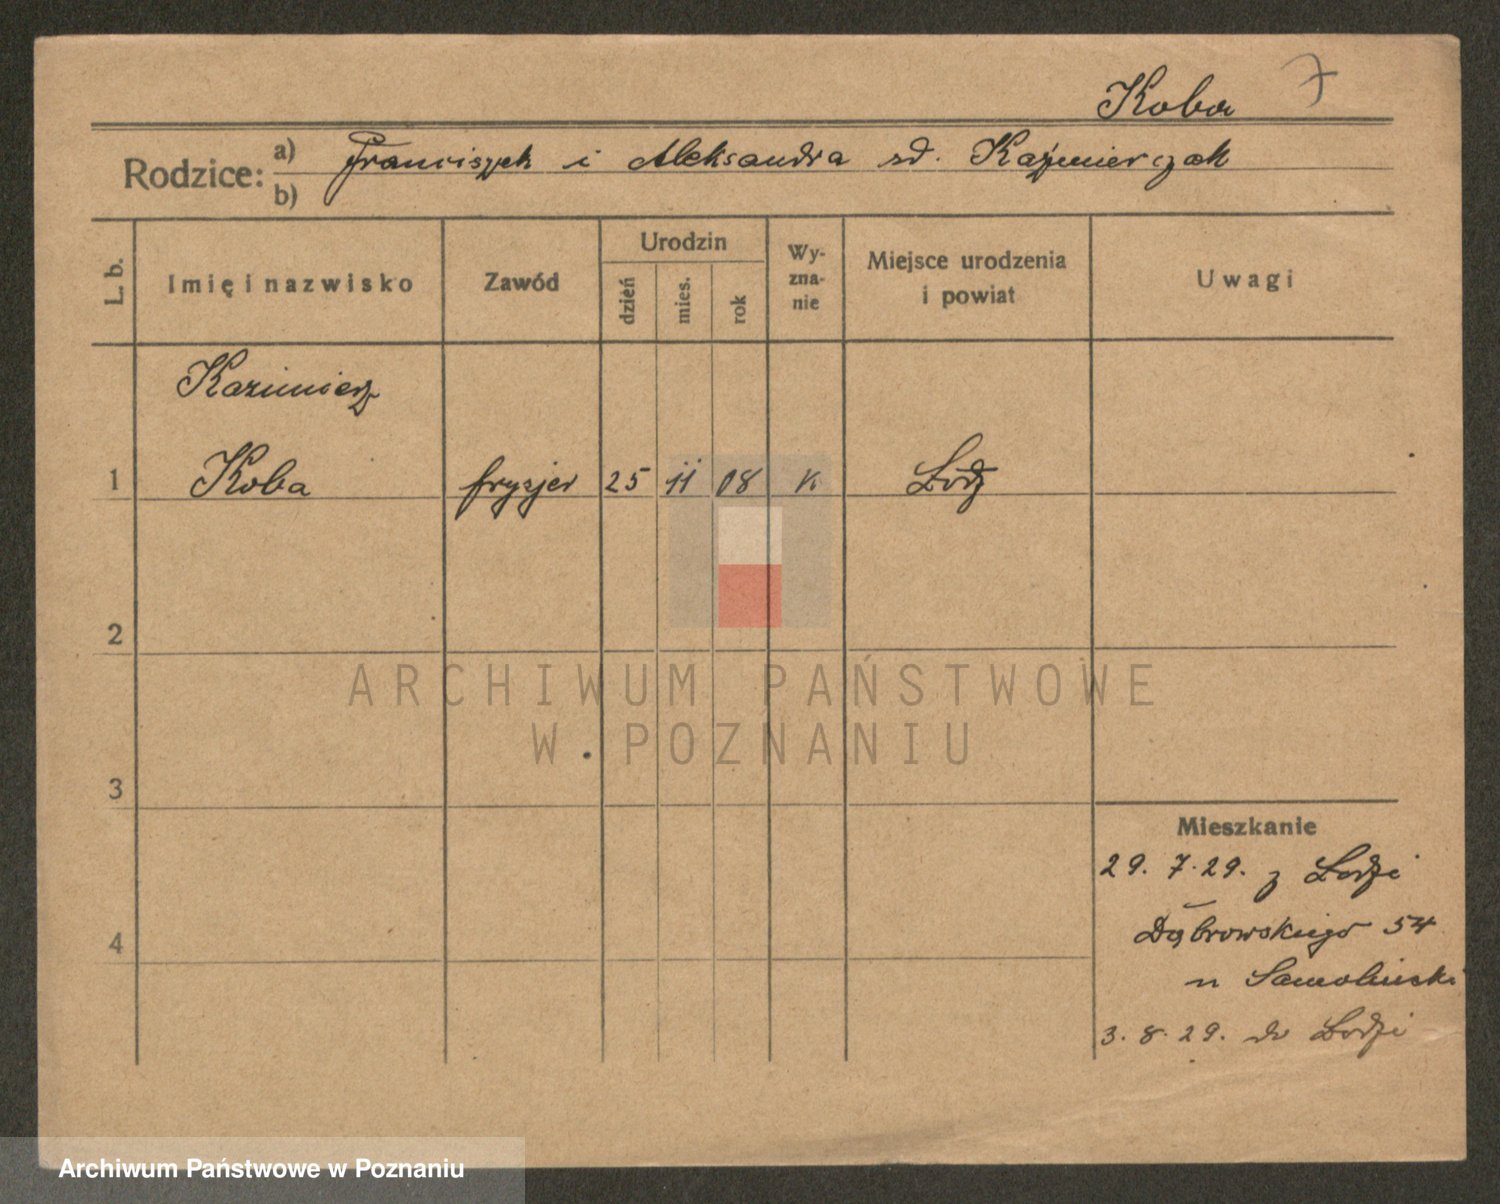 Koba 7
Rodzice: a) Franciszek i Aleksandra zd. Kaźmierczak
b)
L. b. Imię i nazwisko Zawód Urodzin dzień mies. rok Wy-zna-nie Miejsce urodzenia i powiat Uwagi
Kazimierz
1 Koba fryzjer 25 11 08 K Łódź
2
ARCHIWUM PAŃSTWOWE
W POZNANIU
3
Mieszkanie
29. 7. 29. z Łodzi
4 Dąbrowskiego 54
u Samoliński
3. 8. 29. do Łodzi
Archiwum Państwowe w Poznaniu